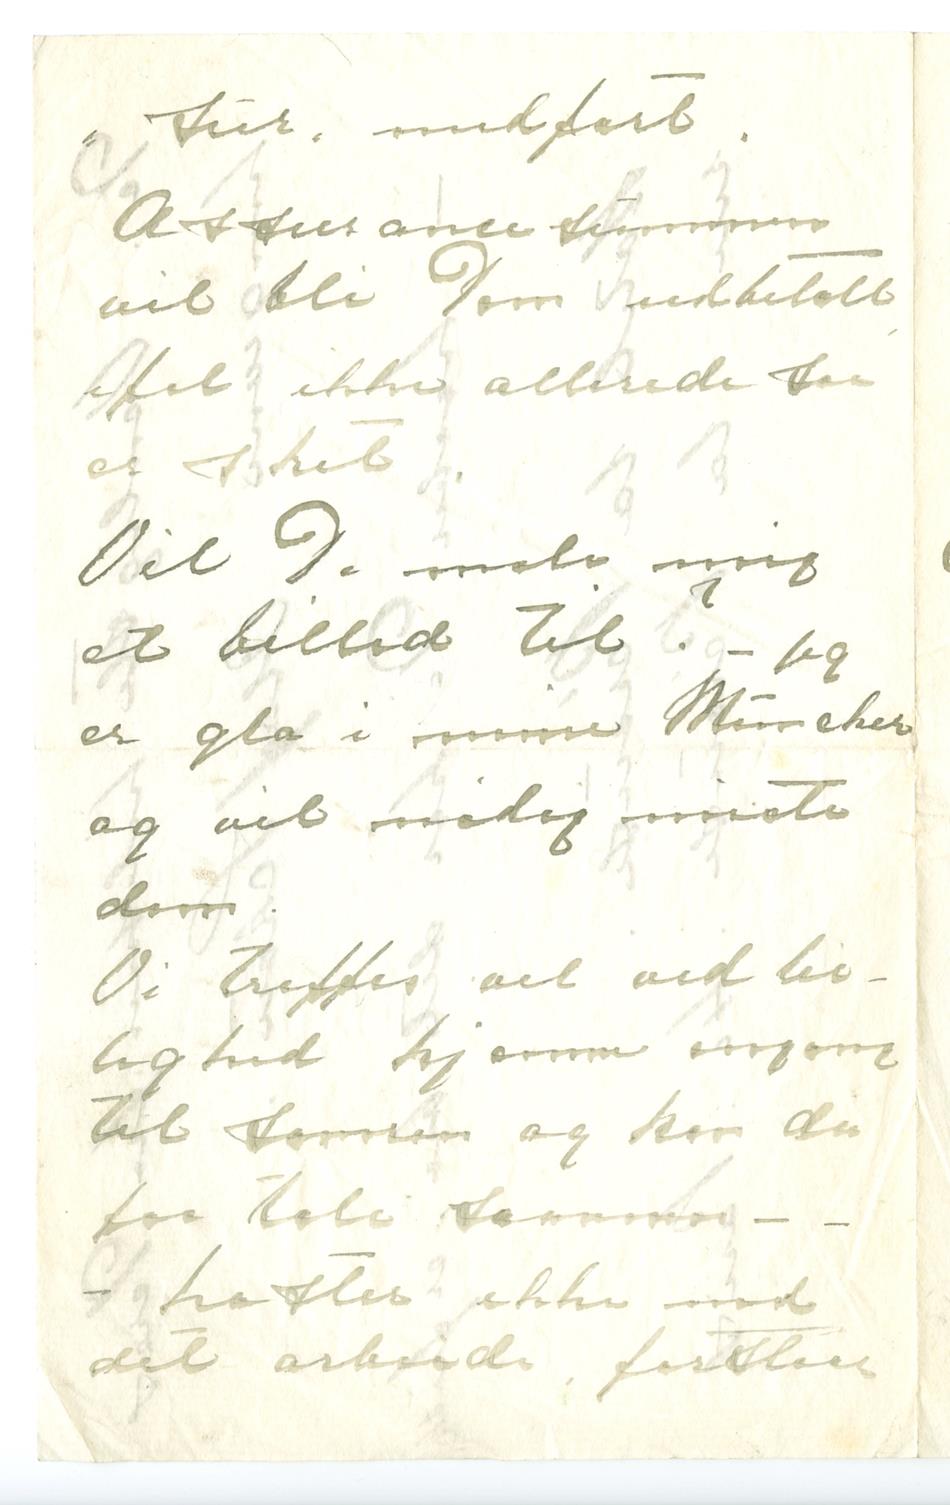 " sur. medfart.
Assurancesummen
vil bli Dem udbetalt,
ifal ikke allerede saa
er sket.
Vil De male mig
et billed til? – jeg
er gla i mine Muncher
og vil nødig miste
dem.
Vi treffes vel ved lei-
lighed hjemme engang
til sommeren og kan da
faa tale sammen – –
– haster ikke med
det arbeide, forstaar